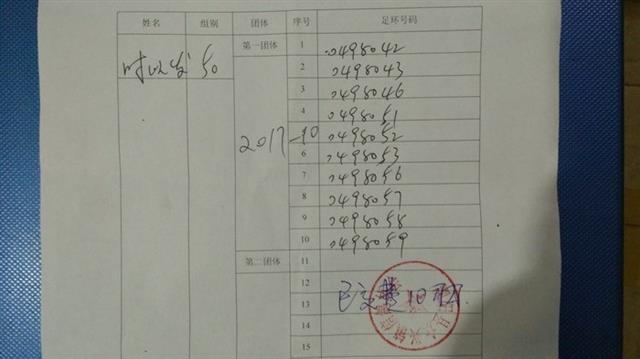 姓名 组别 团体 序号 足环号码
第一团体 1 0498042
50 2 0498043
3 0498046
4 0498051
2017-10 0498052
6 0498053
7 0498056
8 0498057
9 0498058
10 0498059
第二团体 11
12
已交费10羽
13
14
15